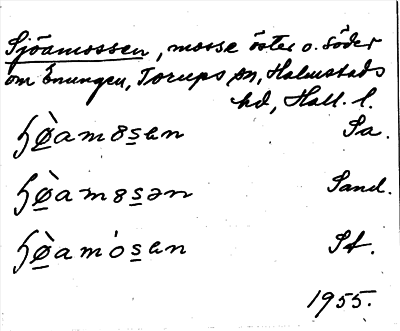 Sjöamossen, mosse öster o. söder
om Enungen, Torups sn, Halmstads
hd, Hall. l.
ɧø̀amꝏsen Sa.
ɧø̀amꝏsən Sand.
ɧø̀amósen St.
1955.